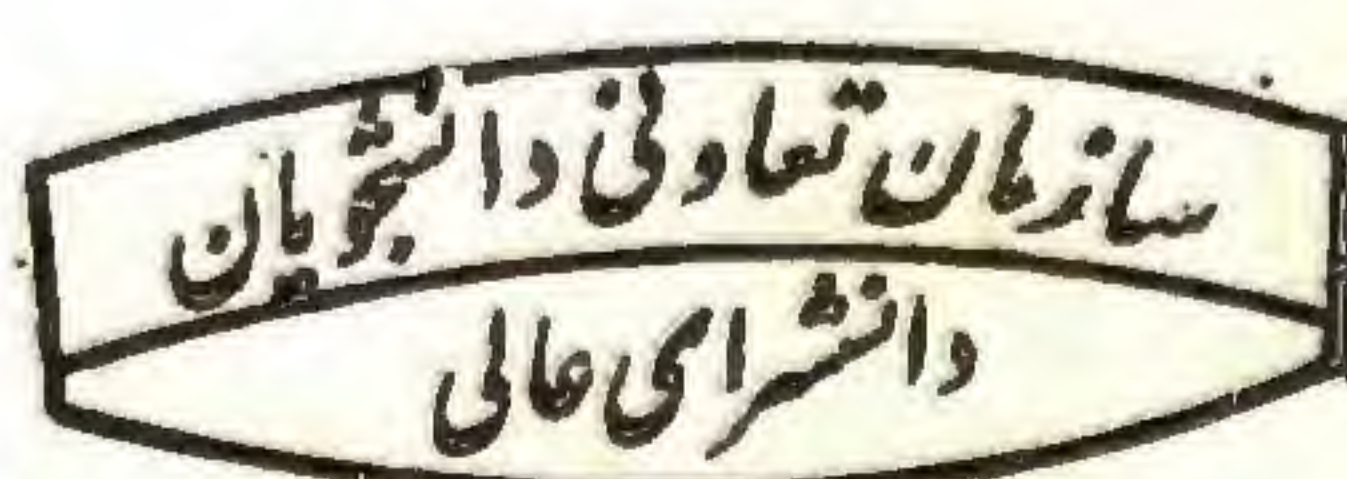 سازمان تعاونی دانشجویان
دانشسرای عالی